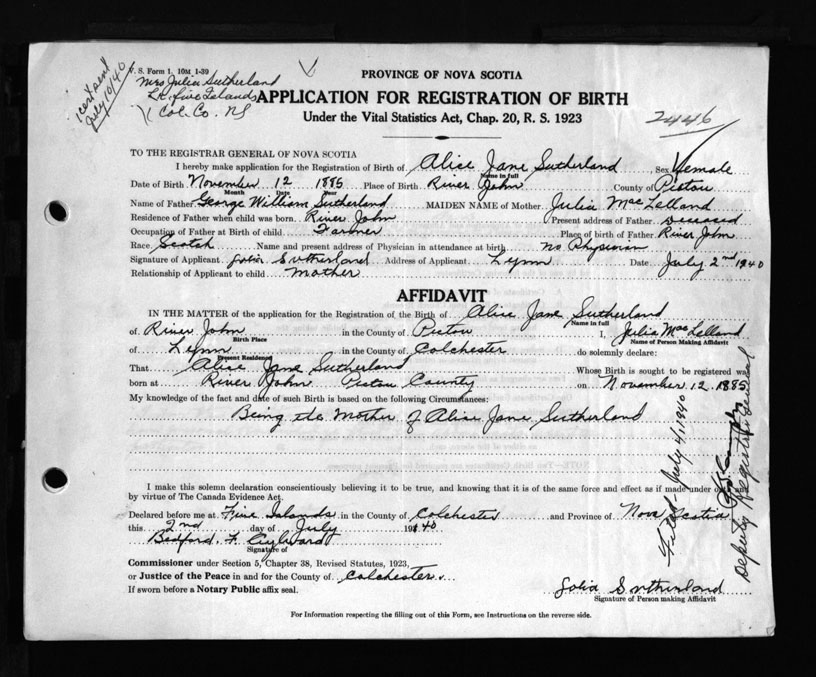 V. S. Form 1. 10M 1-39
Mrs Julia Sutherland
Five Islands
Col. Co. NS
1 cert sent
July 10/40
PROVINCE OF NOVA SCOTIA
APPLICATION FOR REGISTRATION OF BIRTH
Under the Vital Statistics Act, Chap. 20, R. S. 1923
2446
TO THE REGISTRAR GENERAL OF NOVA SCOTIA
I hereby make application for the Registration of Birth of Alice Jane Sutherland Sex Female
Name in full
Date of Birth November 12 1885 Place of Birth River John County of Pictou
Month Date Year
Name of Father George William Sutherland MAIDEN NAME of Mother Julia MacLelland
Residence of Father when child was born River John Present address of Father Deceased
Occupation of Father at Birth of child Farmer Place of birth of Father River John
Race Scotch Name and present address of Physician in attendance at birth No Physician
Signature of Applicant Julia Sutherland Address of Applicant Lynn Date July 2nd 1940
Relationship of Applicant to child Mother
AFFIDAVIT
IN THE MATTER of the application for the Registration of the Birth of Alice Jane Sutherland
Name in full
of River John in the County of Pictou I, Julia MacLelland
Birth Place Name of Person Making Affidavit
of Lynn in the County of Colchester do solemnly declare:
Present Residence
That Alice Jane Sutherland Whose Birth is sought to be registered was
born at River John Pictou County on November 12 1885
My knowledge of the fact and date of such Birth is based on the following Circumstances:
Being the Mother of Alice Jane Sutherland
I make this solemn declaration conscientiously believing it to be true, and knowing that it is of the same force and effect as if made under oath and
by virtue of The Canada Evidence Act.
Declared before me at Five Islands in the County of Colchester and Province of Nova Scotia
this 2nd day of July 1940
Bedford F.
Signature of
Commissioner under Section 5, Chapter 38, Revised Statutes, 1923,
or Justice of the Peace in and for the County of Colchester
If sworn before a Notary Public affix seal.
Julia Sutherland
Signature of Person making Affidavit
For Information respecting the filling out of this Form, see Instructions on the reverse side.
Filed July 4, 1940
Deputy Registrar General